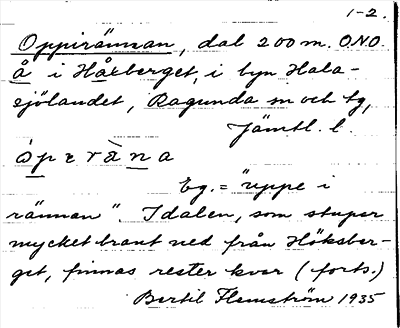 1-2.
Oppirännan, dal 200 m. O.N.O.
Å i Håxberget, i byn Hala-
sjölandet, Ragunda sn och tg,
Jämtl. l.
òpɛràna
Eg. = "uppe i
rännan". I dalen, som stupar
mycket brant ned från Höksber-
get, finnas rester kvar (forts.)
Bertil Flemström 1935